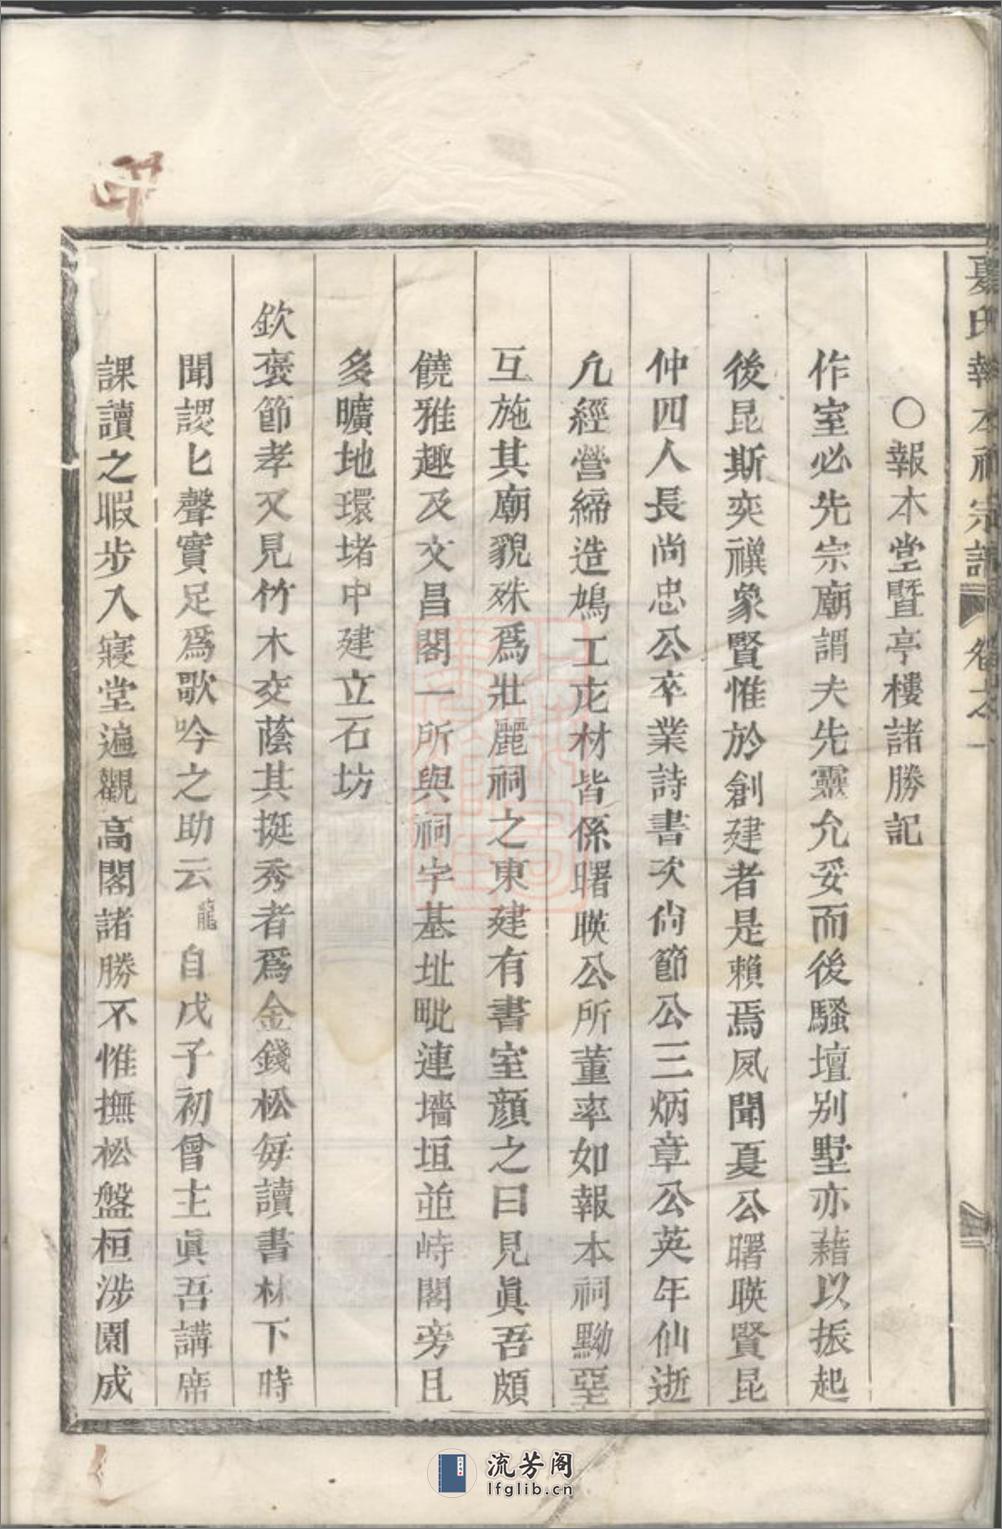 夏氏報本祠宗譜 卷之一
〇報本堂暨亭樓諸勝記
作室必先宗廟謂夫先靈允妥而後騷壇別墅亦藉以振起
後昆斯奕禩象賢惟於創建者是賴焉夙聞夏公曙暎賢昆
仲四人長尚忠公卒業詩書次尙節公三炳章公英年仙逝
凢經營締造鳩工庀材皆係曙暎公所董率如報本祠黝堊
互施其廟貌殊爲壯麗祠之東建有書室顔之曰見眞吾頗
饒雅趣及文昌閣一所與祠宇基址毗連墻垣並峙閣旁且
多曠地環堵中建立石坊
欽褒節孝又見竹木交蔭其挺秀者爲金錢松每讀書林下時
聞謖匕聲實足爲歌吟之助云龍自戊子初曾主眞吾講席
課讀之暇步入寢堂遍觀高閣諸勝不惟撫松盤桓涉園成
流芳阁
lfglib.cn